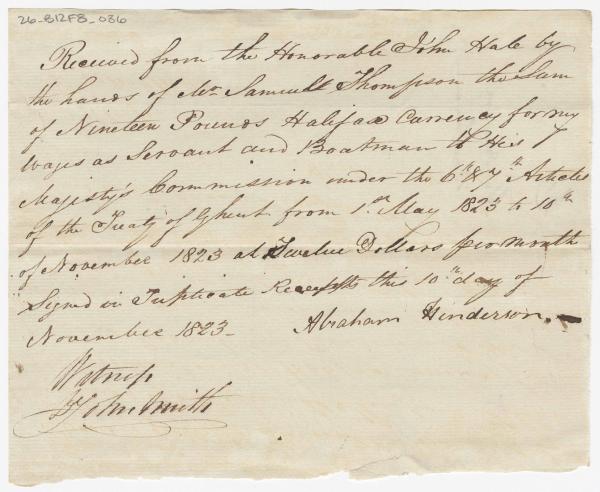 26-B12F8-036
Received from the Honorable John Hale by
the hands of Mr Samuell Thompson the Sum
of Nineteen Pounds Halifax Currency for my
Wages as Servant and Boatman to His
Majesty's Commission under the 6th & 7th Articles
of the Treaty of Ghent from 1st May 1823 to 10th
of November 1823 at Twelve Dollars per month
Signed in Triplicate Receipts this 10th day of
November 1823_ Abraham Hinderson.
Witness
John Smith